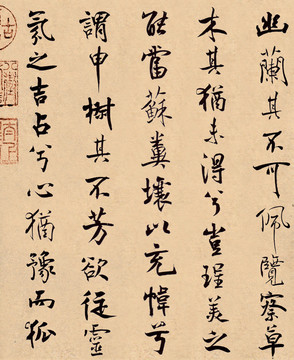 幽蘭其不可佩覽察草
木其猶未得兮豈珵美之
能當蘇糞壤以充幃兮
謂申樹其不芳欲從靈
氛之吉占兮心猶豫而狐